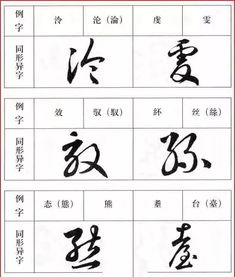 例字 泠 沦（淪） 虔 雯
同形异字
例字 效 驭（馭） 丝（絲）
同形异字
例字 态（態） 熊 台（臺）
同形异字